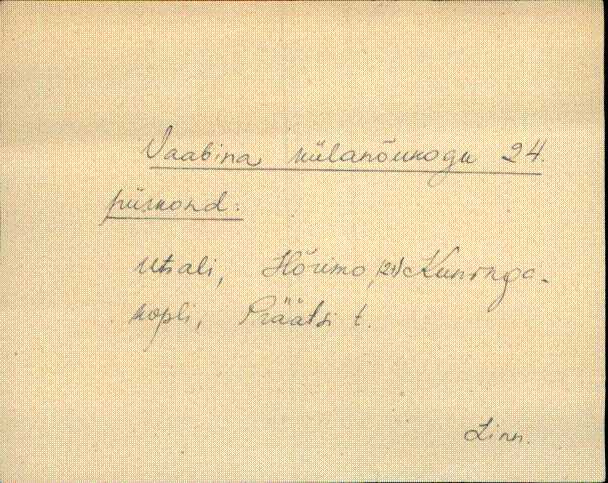 Vaabina külanõukogu 24.
piiskond:
Utsali, Hõrimo, (21) Kuninga-
kopli, Präätsi t.
Linn.